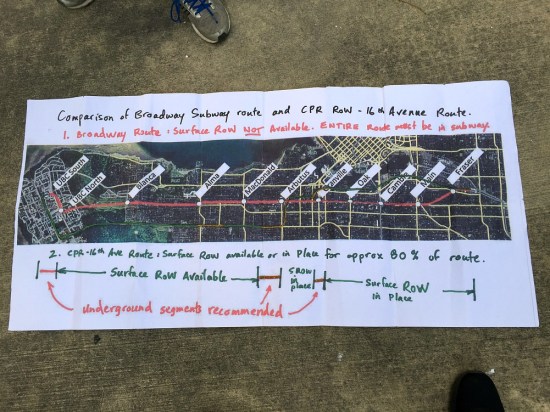 Comparison of Broadway Subway route and CPR ROW - 16th Avenue Route.
1. Broadway Route : Surface ROW NOT Available. ENTIRE Route must be in subway.
UBC South
UBC North
Blanca
Alma
Macdonald
Arbutus
Granville
Oak
Cambie
Main
Fraser
2. CPR-16th Ave Route : Surface ROW available or in Place for approx 80% of route.
Surface ROW Available
SROW in place
Surface ROW in Place
Underground segments recommended